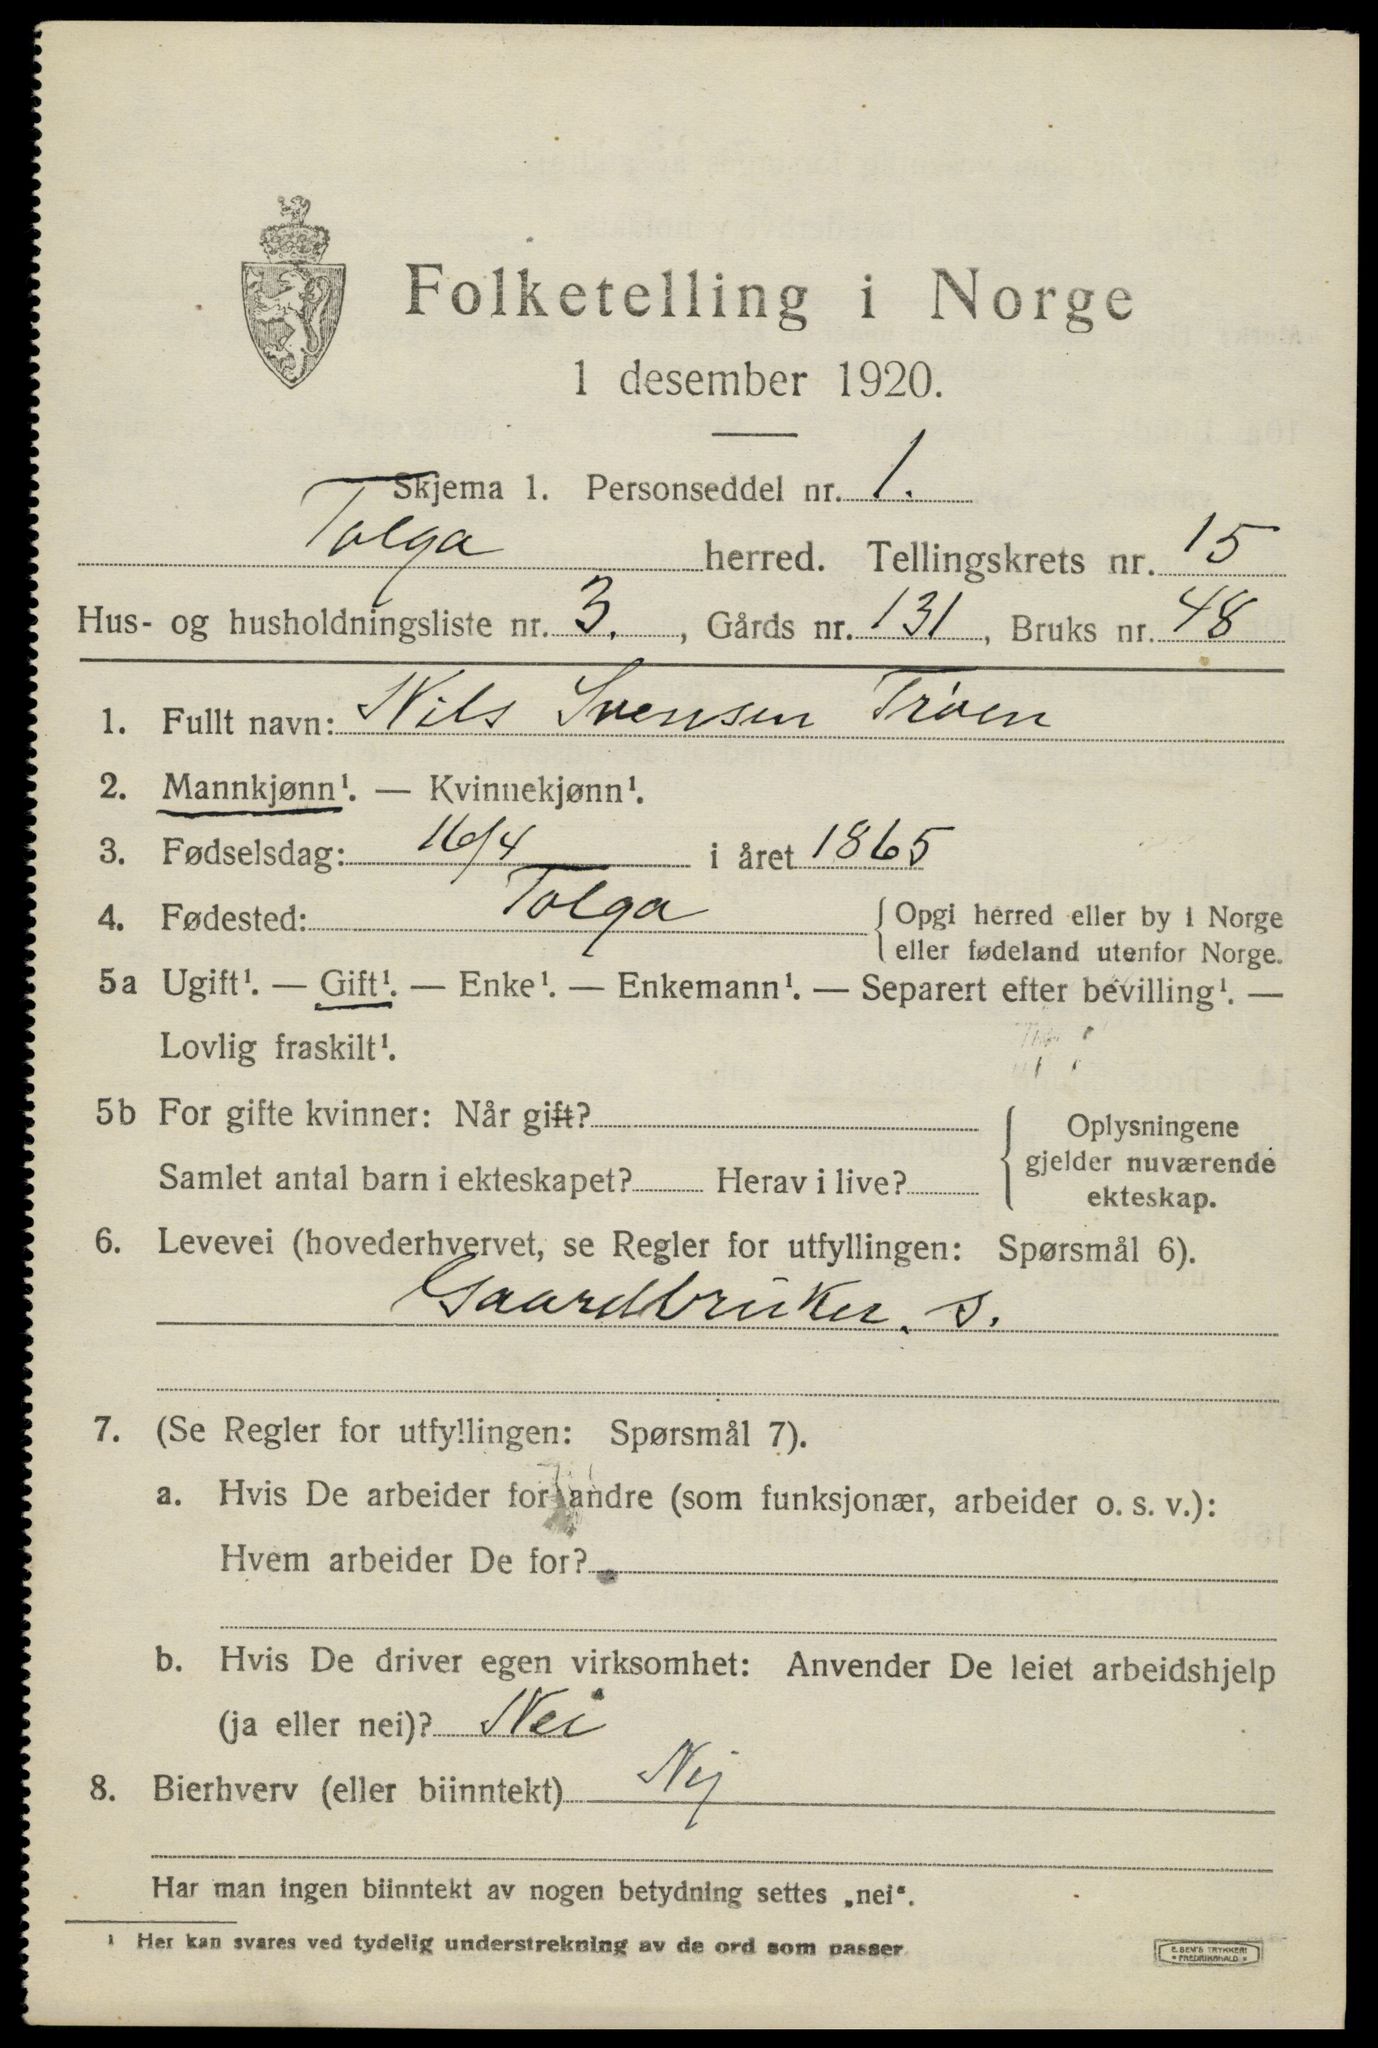 Folketelling i Norge
1 desember 1920.
Skjema 1. Personseddel nr. 1.
Tolga herred. Tellingskrets nr. 15
Hus- og husholdningsliste nr. 3., Gårds nr. 131, Bruks nr. 48
1. Fullt navn: Nils Svensen Trøen
2. Mannkjønn¹. — Kvinnekjønn¹.
3. Fødselsdag: 16/4 i året 1865
4. Fødested: Tolga {Opgi herred eller by i Norge
eller fødeland utenfor Norge.
5a Ugift¹. — Gift¹. — Enke¹. — Enkemann¹. — Separert efter bevilling¹. —
Lovlig fraskilt¹.
5b For gifte kvinner: Når gift?
Samlet antal barn i ekteskapet? Herav i live?
Oplysningene
gjelder nuværende
ekteskap.
6. Levevei (hovederhvervet, se Regler for utfyllingen: Spørsmål 6).
Gaardbruker. s.
7. (Se Regler for utfyllingen: Spørsmål 7).
a. Hvis De arbeider for andre (som funksjonær, arbeider o. s. v.):
Hvem arbeider De for?
b. Hvis De driver egen virksomhet: Anvender De leiet arbeidshjelp
(ja eller nei)? Nei
8. Bierhverv (eller biinntekt) Nej
Har man ingen biinntekt av nogen betydning settes „nei“.
¹ Her kan svares ved tydelig understrekning av de ord som passer
E. SEM'S TRYKKERI
FREDRIKSHALD